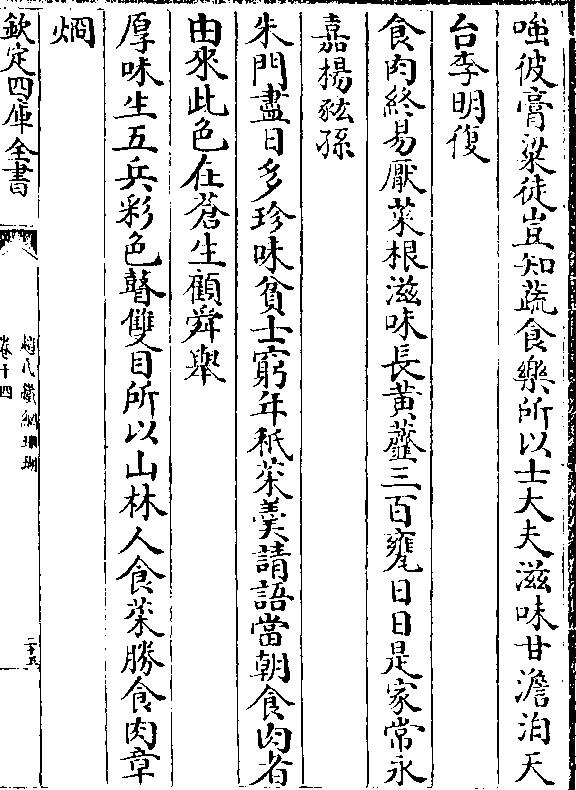 嗤彼膏粱徒豈知蔬食樂所以士大夫滋味甘澹泊天
台李明復
食肉終易厭菜根滋味長黃虀三百甕日日是家常永
嘉楊豥孫
朱門盡日多珍味貧士窮年秪菜羮請語當朝食肉者
由來此色在蒼生顧舜舉
厚味生五兵彩色瞽雙目所以山林人食菜勝食肉章
烱
欽定四庫全書
趙氏鐵網珊瑚
卷十四
二十五